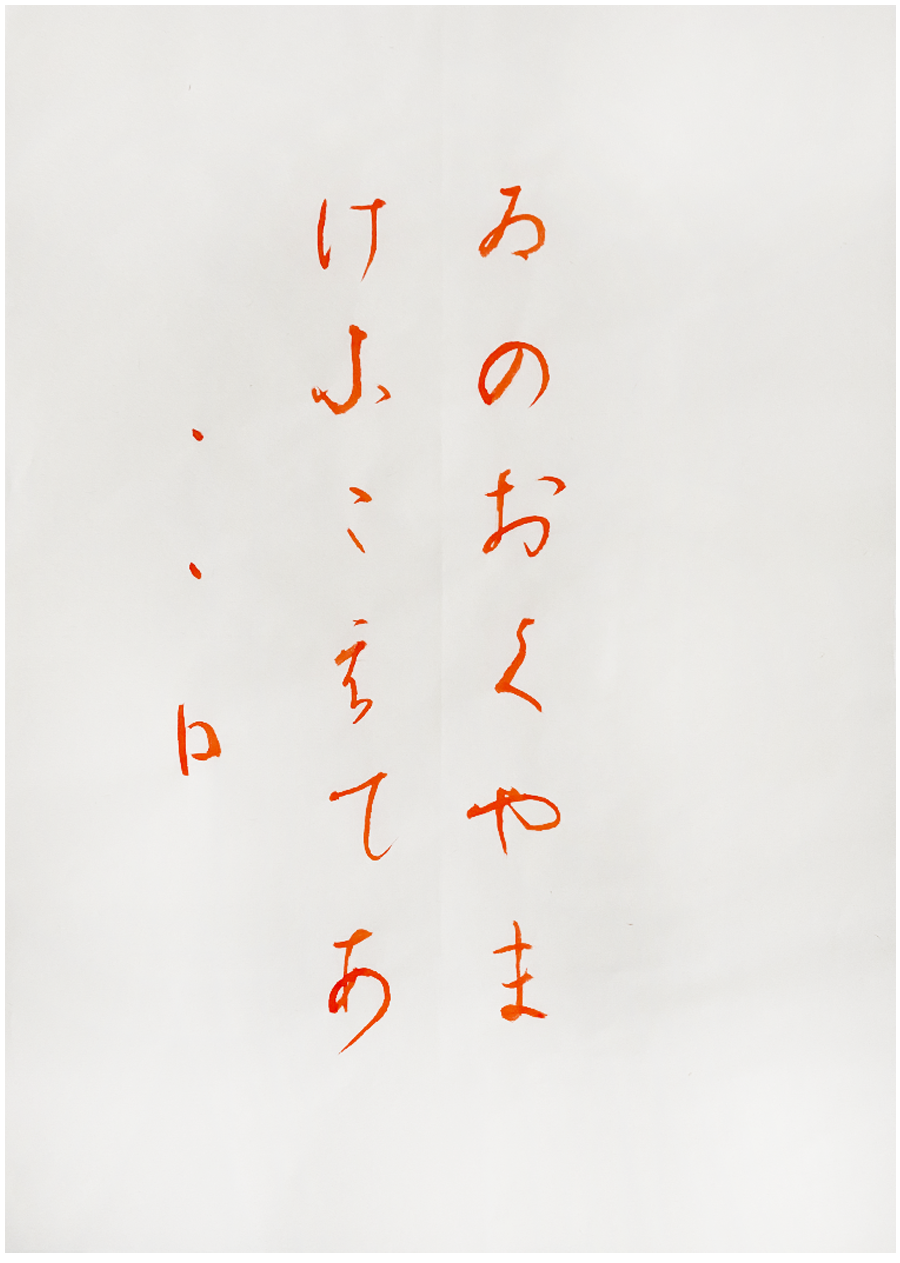 ゐのおくやま
けふこえてあ